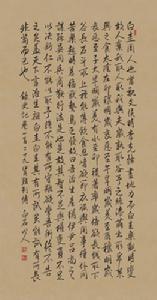 白圭周人也當魏文侯時李克務盡地力而白圭樂觀時變
故人棄我取人取我與夫歲孰取穀予之絲漆繭出取帛絮
予之食太陰在卯穰明歲衰惡至午旱明歲美至酉穰明歲衰
惡至子大旱明歲美有水至卯積著率歲倍欲長錢取下
穀長石斗取上種能薄飲食忍嗜欲節衣服與用事僮僕同
苦樂趨時若猛獸摯鳥之發故曰吾治生產猶伊尹呂尚之
謀孫吳用兵商鞅行法是也是故其智不足與權變勇不足
以決斷仁不能以取予彊不能有所守雖欲學吾術終不告
之矣蓋天下言治生祖白圭白圭其有所試矣能試有所長
非苟而已也 錄史記卷一百二十九貨殖列傳